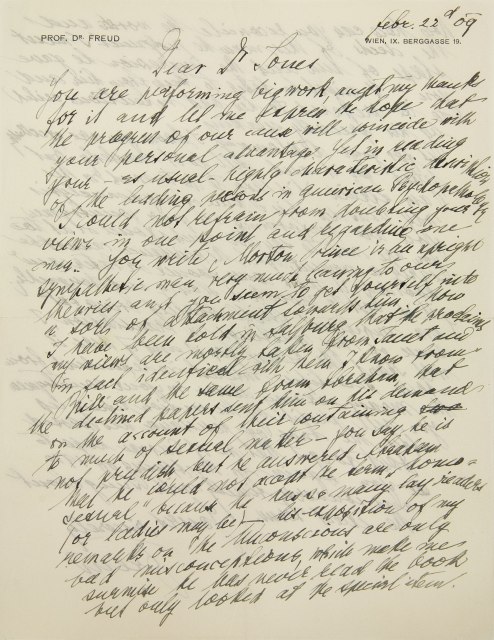 febr. 22d 09
PROF. DR. FREUD
WIEN, IX. BERGGASSE 19.
Dear Dr Jones
You are performing big work, accept my thanks
for it and let me express the hope that
the progress of our cause will coincide with
your personal advantage. Yet in reading
your as usual highly characteristic description
of the leading persons in American Psychopathology
I could not refrain from doubting your
views in one point and regarding one
man. You write, Morton Prince is an
sympathetic man, very much leaning to our
theories, and you seem to get yourself into
a sort of attachment towards him. Now
I have been told in Salzburg that he proclaims
my views are mostly taken from Janet and
in fact identical with him. I know from
Brill and the same from Abraham, that
he declined papers sent him on his demand
on the account of their containing
to much of sexual matter – you say he is
not prudish but he answered Abraham
that he could not accept the term "homo-
sexual" because he has so many lay readers
(or ladies may be). His exposition of my
remarks on the Unconscious are only
bad misconceptions, which make me
surmise he has never read the book
but only looked at the special item.